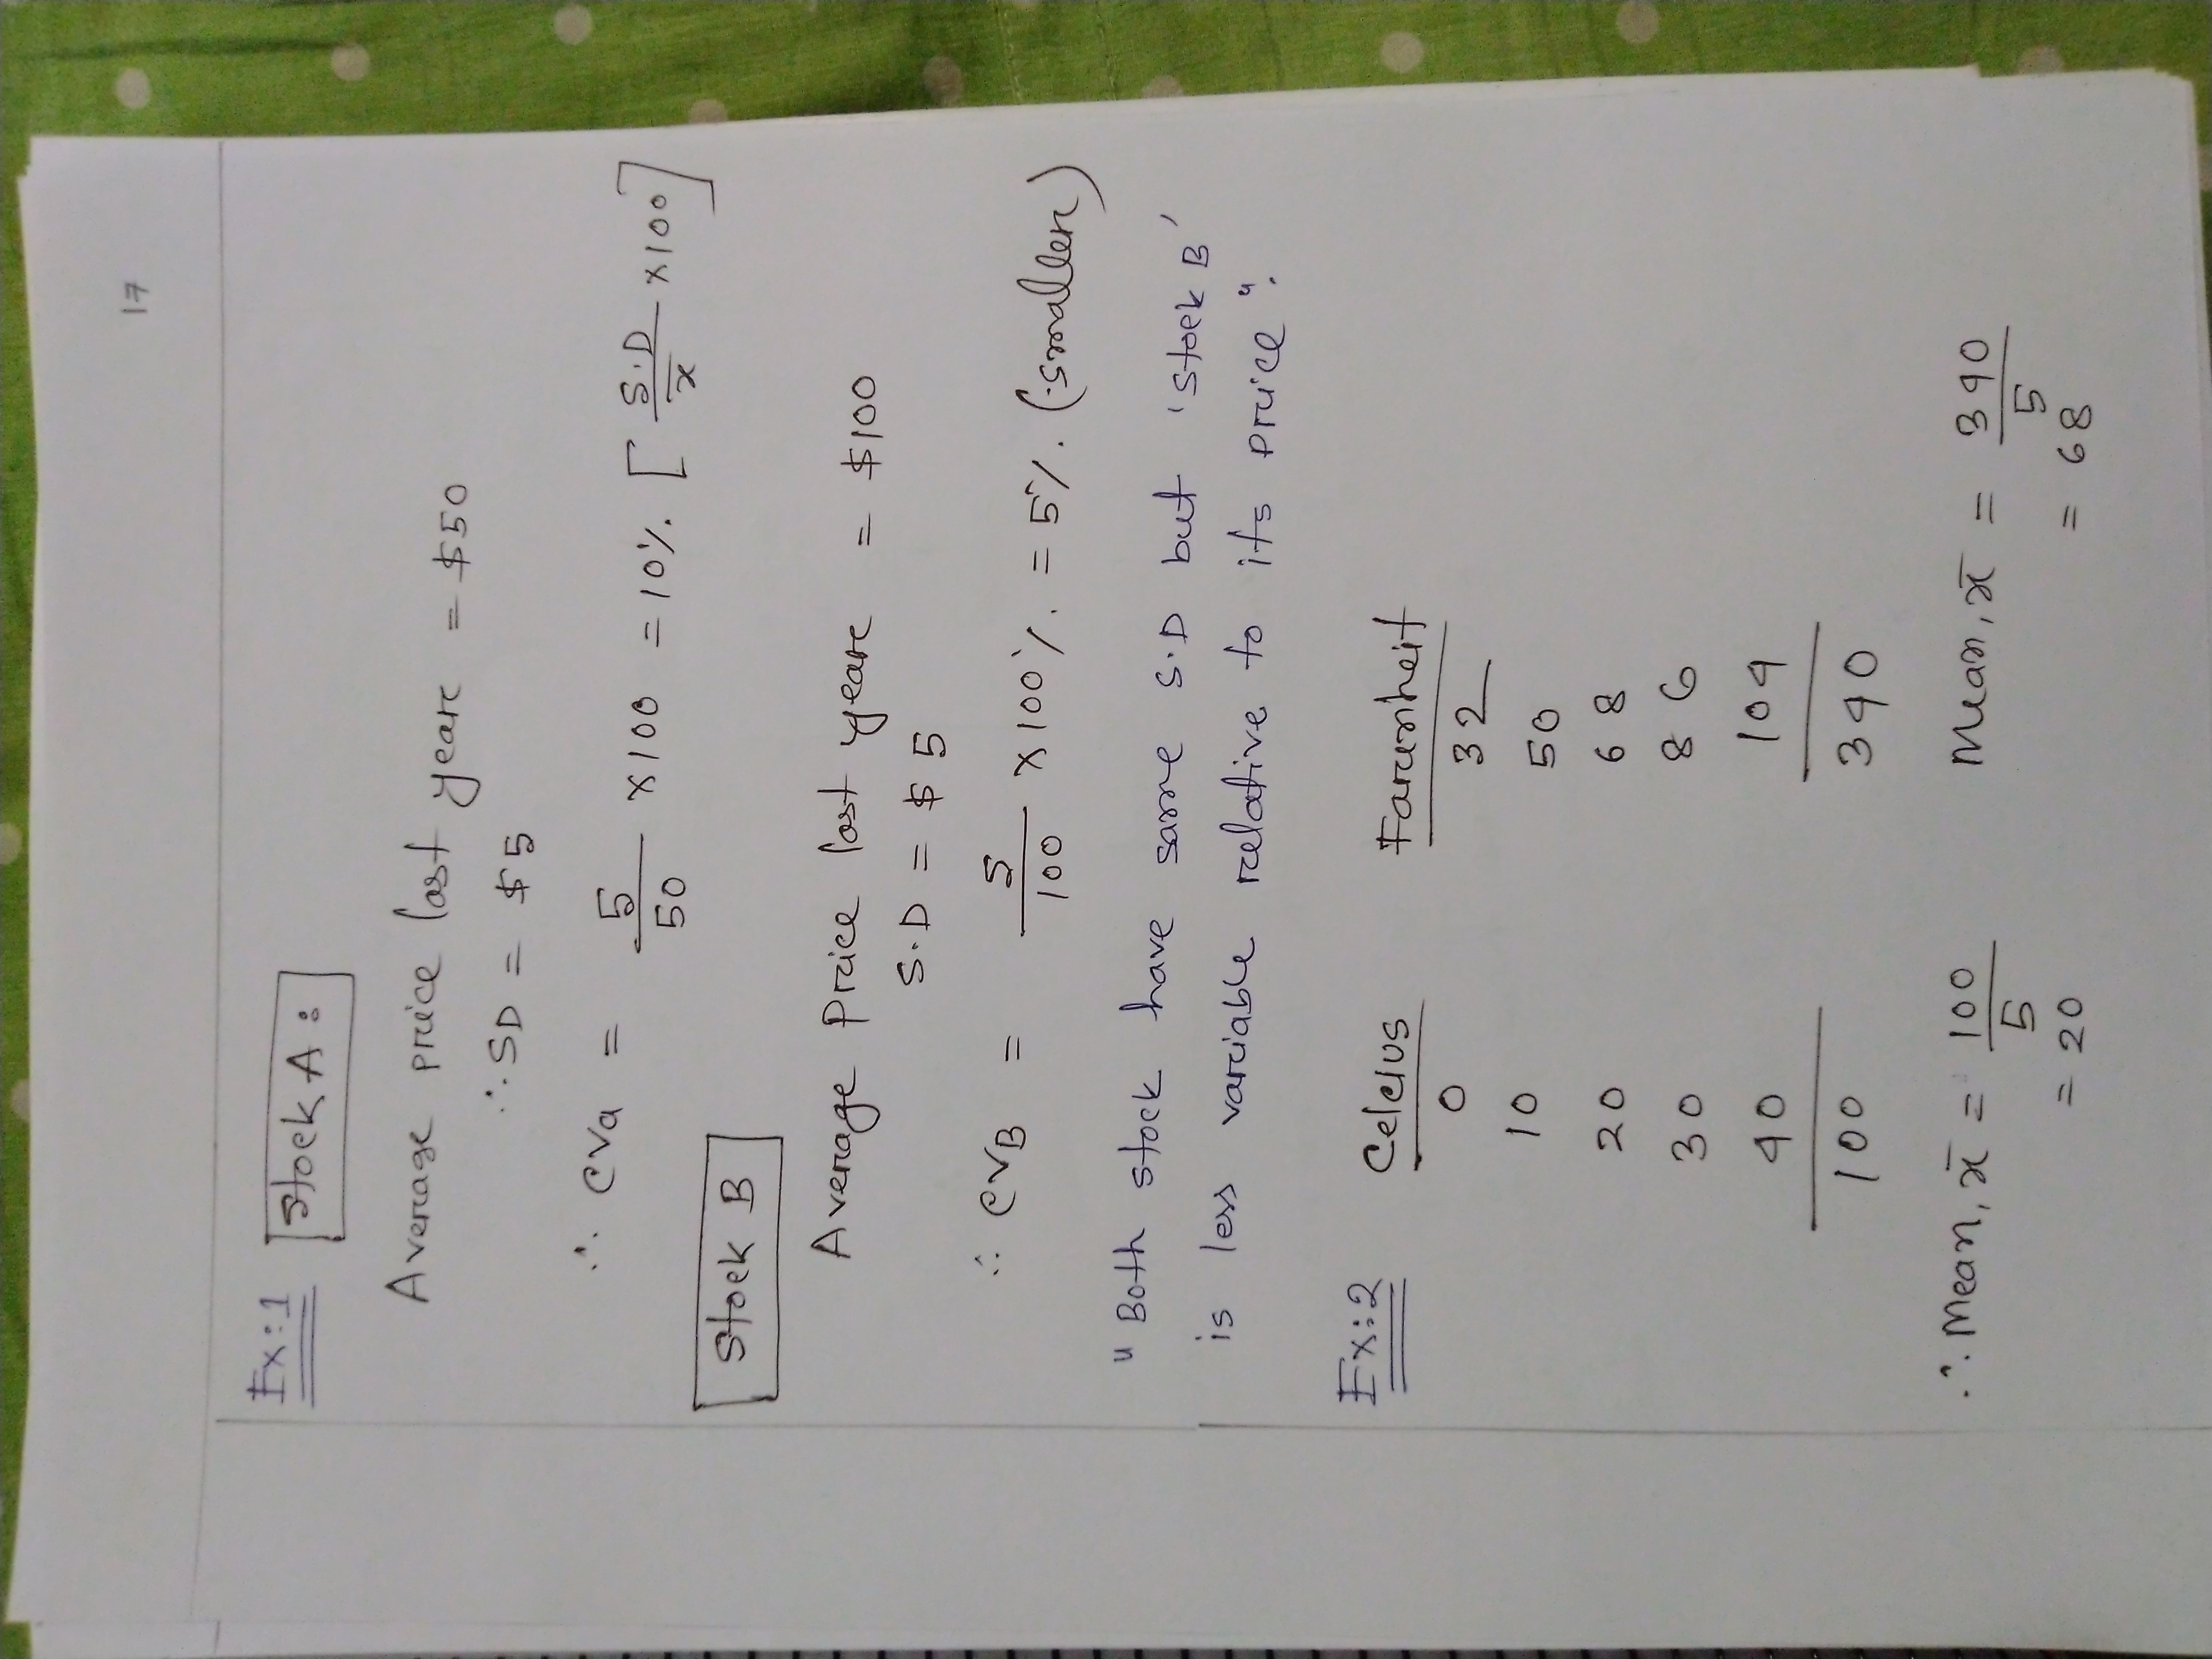 17
Ex:1 Stock A:
Average price last year = $50
∴ SD = $5
∴ CVa = 5/50 x100 = 10% [S.D/x̄ x100]
Stock B
Average Price last year = $100
S.D = $5
∴ CVB = 5/100 x100% = 5%. (smaller)
"Both stock have same S.D but 'Stock B'
is less variable relative to its price".
Ex:2 Celcius Farenheit
0 32
10 50
20 68
30 86
40 104
100 340
∴ Mean, x̄ = 100/5 Mean, x̄ = 340/5
= 20 = 68